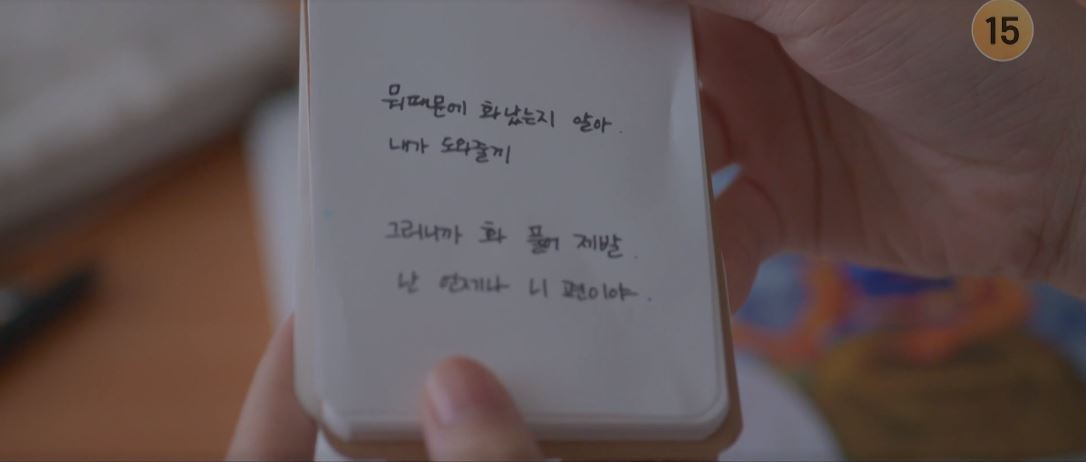 15
뭐때문에 화났는지 알아.
내가 도와줄끼
그러니까 화 풀어 제발.
난 언제나 니 편이야.